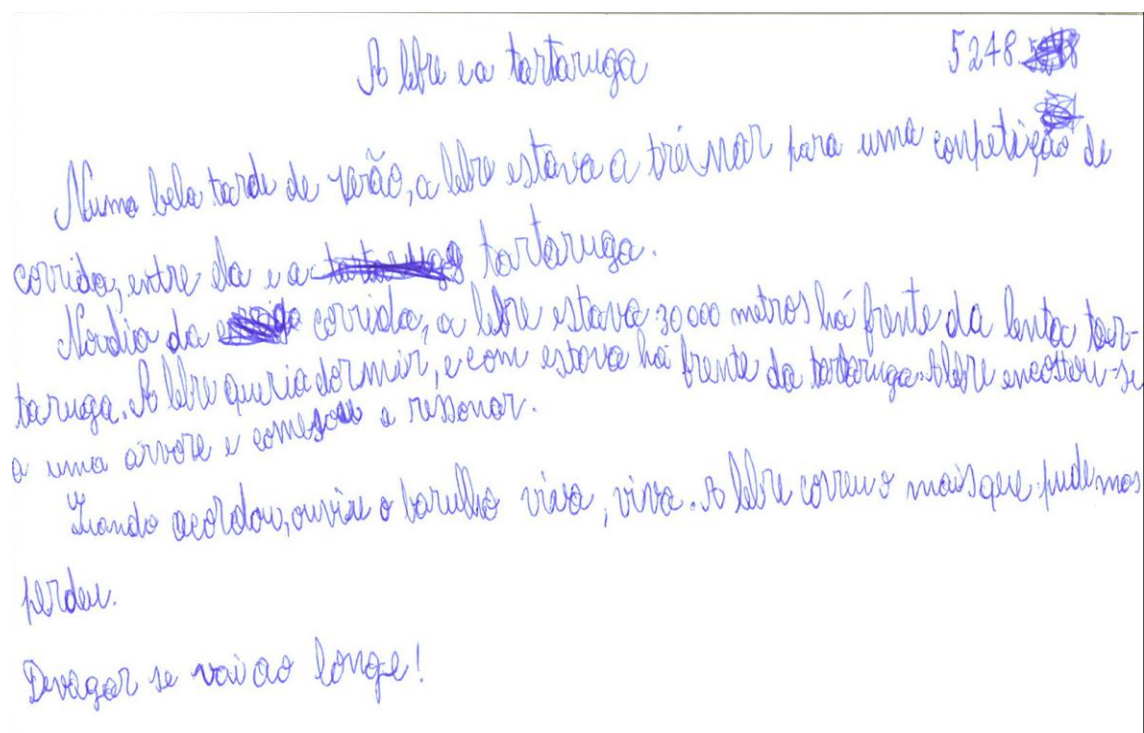 A lebre e a tartaruga 5248
Numa bela tarde de verão, a lebre estava a tréinar para uma conpetição de
corrida, entre ela e a tartaruga tartaruga.
No dia da corrida, a lebre estava 30 000 metros há frente da lenta tar-
taruga. A lebre queria dormir, e com estava há frente da tartaruga. A lebre encostou-se
a uma árvore e começou a ressonar.
Quando acordou, ouviu o barulho viva, viva. A lebre correu o mais que pude mas
perdeu.
Devagar se vai ao longe!